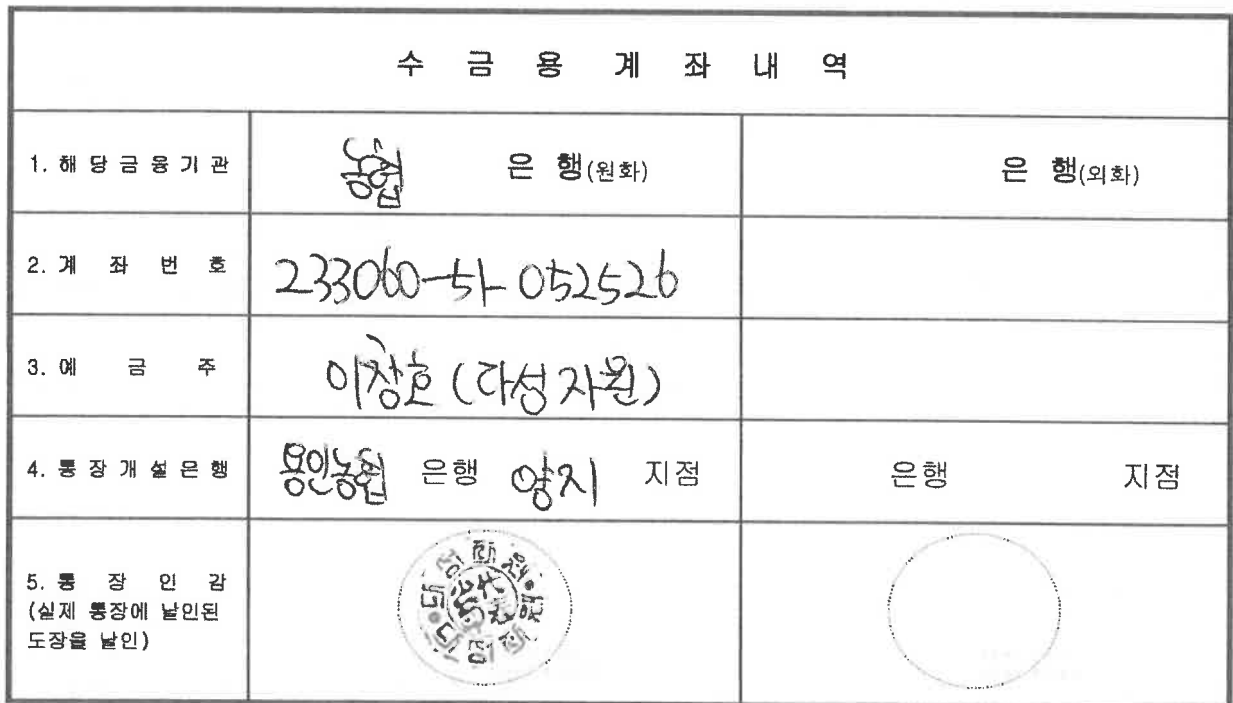 수 금 용 계 좌 내 역
1. 해 당 금 융 기 관 농협 은 행(원화) 은 행(외화)
2. 계 좌 번 호 233060-51-052526
3. 예 금 주 이창호 (다성자원)
4. 통 장 개 설 은 행 용인농협 은행 양지 지점 은행 지점
5. 통 장 인 감
(실제 통장에 날인된
도장을 날인)